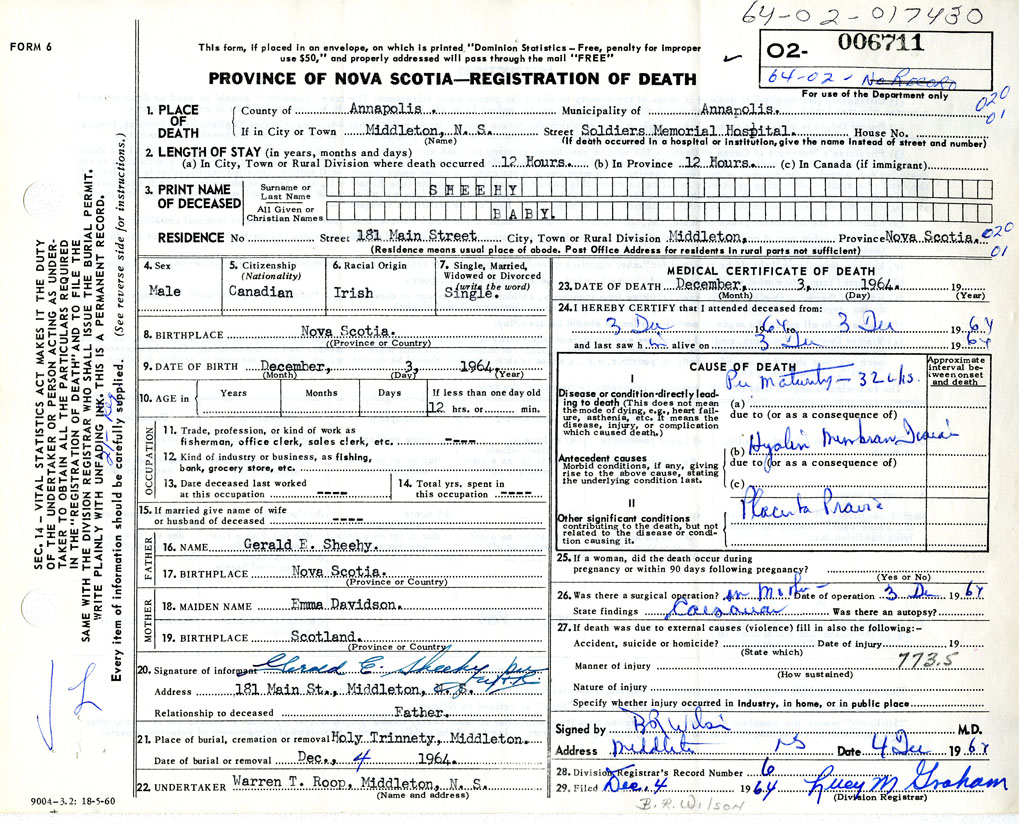 64-02-017430
FORM 6
This form, if placed in an envelope, on which is printed "Dominion Statistics – Free, penalty for improper
use $50," and properly addressed will pass through the mail "FREE"
PROVINCE OF NOVA SCOTIA—REGISTRATION OF DEATH
02- 006711
64-02- No Record
For use of the Department only
020
01
1. PLACE OF DEATH
County of Annapolis. Municipality of Annapolis.
If in City or Town Middleton, N. S. Street Soldiers Memorial Hospital. House No.
(Name) (If death occurred in a hospital or institution, give the name instead of street and number)
2. LENGTH OF STAY (in years, months and days)
(a) In City, Town or Rural Division where death occurred 12 Hours. (b) In Province 12 Hours. (c) In Canada (if immigrant)
3. PRINT NAME OF DECEASED
Surname or Last Name SHEEHY
All Given or Christian Names BABY.
RESIDENCE No Street 181 Main Street City, Town or Rural Division Middleton, Province Nova Scotia. 020
(Residence means usual place of abode. Post Office Address for residents in rural parts not sufficient) 01
4. Sex
Male
5. Citizenship
(Nationality)
Canadian
6. Racial Origin
Irish
7. Single, Married,
Widowed or Divorced
(write the word)
Single.
8. BIRTHPLACE Nova Scotia.
(Province or Country)
9. DATE OF BIRTH December, 3, 1964.
(Month) (Day) (Year)
10. AGE in Years Months Days If less than one day old
12 hrs. or min.
OCCUPATION
11. Trade, profession, or kind of work as
fisherman, office clerk, sales clerk, etc. ----
12. Kind of industry or business, as fishing,
bank, grocery store, etc. ----
13. Date deceased last worked
at this occupation ----
14. Total yrs. spent in
this occupation ----
15. If married give name of wife
or husband of deceased ----
FATHER
16. NAME Gerald E. Sheehy.
17. BIRTHPLACE Nova Scotia.
(Province or Country)
MOTHER
18. MAIDEN NAME Emma Davidson.
19. BIRTHPLACE Scotland.
(Province or Country)
20. Signature of informant Gerald E. Sheehy per
Address 181 Main St., Middleton, N. S.
Relationship to deceased Father.
21. Place of burial, cremation or removal Holy Trinnety, Middleton.
Date of burial or removal Dec., 4 1964.
22. UNDERTAKER Warren T. Roop, Middleton, N. S.
(Name and address)
MEDICAL CERTIFICATE OF DEATH
23. DATE OF DEATH December, 3, 1964. 19
(Month) (Day) (Year)
24. I HEREBY CERTIFY that I attended deceased from:
3 Dec 1964 to 3 Dec 1964
and last saw him alive on 3 Dec 1964
CAUSE OF DEATH
Approximate
interval be-
tween onset
and death
I
Disease or condition directly lead-
ing to death (This does not mean
the mode of dying, e.g., heart fail-
ure, asthenia, etc. It means the
disease, injury, or complication
which caused death.)
Pre Maturity – 32 wks.
(a)
due to (or as a consequence of)
Antecedent causes
Morbid conditions, if any, giving
rise to the above cause, stating
the underlying condition last.
(b) Hyalin Membran Disease
due to (or as a consequence of)
(c)
II
Other significant conditions
contributing to the death, but not
related to the disease or condi-
tion causing it.
Placenta Praevia
25. If a woman, did the death occur during
pregnancy or within 90 days following pregnancy?
(Yes or No)
26. Was there a surgical operation? on Mother Date of operation 3 Dec 1964
State findings Caesarean Was there an autopsy?
27. If death was due to external causes (violence) fill in also the following:-
Accident, suicide or homicide? Date of injury 19
(State which)
773.5
Manner of injury
(How sustained)
Nature of injury
Specify whether injury occurred in industry, in home, or in public place
Signed by B R Wilson M.D.
Address Middleton NS Date 4 Dec 1964
28. Division Registrar's Record Number 6
29. Filed Dec. 4 1964 Lucy M Graham
(Division Registrar)
B. R. WILSON
SEC. 14 – VITAL STATISTICS ACT MAKES IT THE DUTY
OF THE UNDERTAKER OR PERSON ACTING AS UNDER-
TAKER TO OBTAIN ALL THE PARTICULARS REQUIRED
IN THE "REGISTRATION OF DEATH" AND TO FILE THE
SAME WITH THE DIVISION REGISTRAR WHO SHALL ISSUE THE BURIAL PERMIT.
WRITE PLAINLY WITH UNFADING INK. THIS IS A PERMANENT RECORD.
Every item of information should be carefully supplied. (See reverse side for instructions.)
9004-3.2: 18-5-60